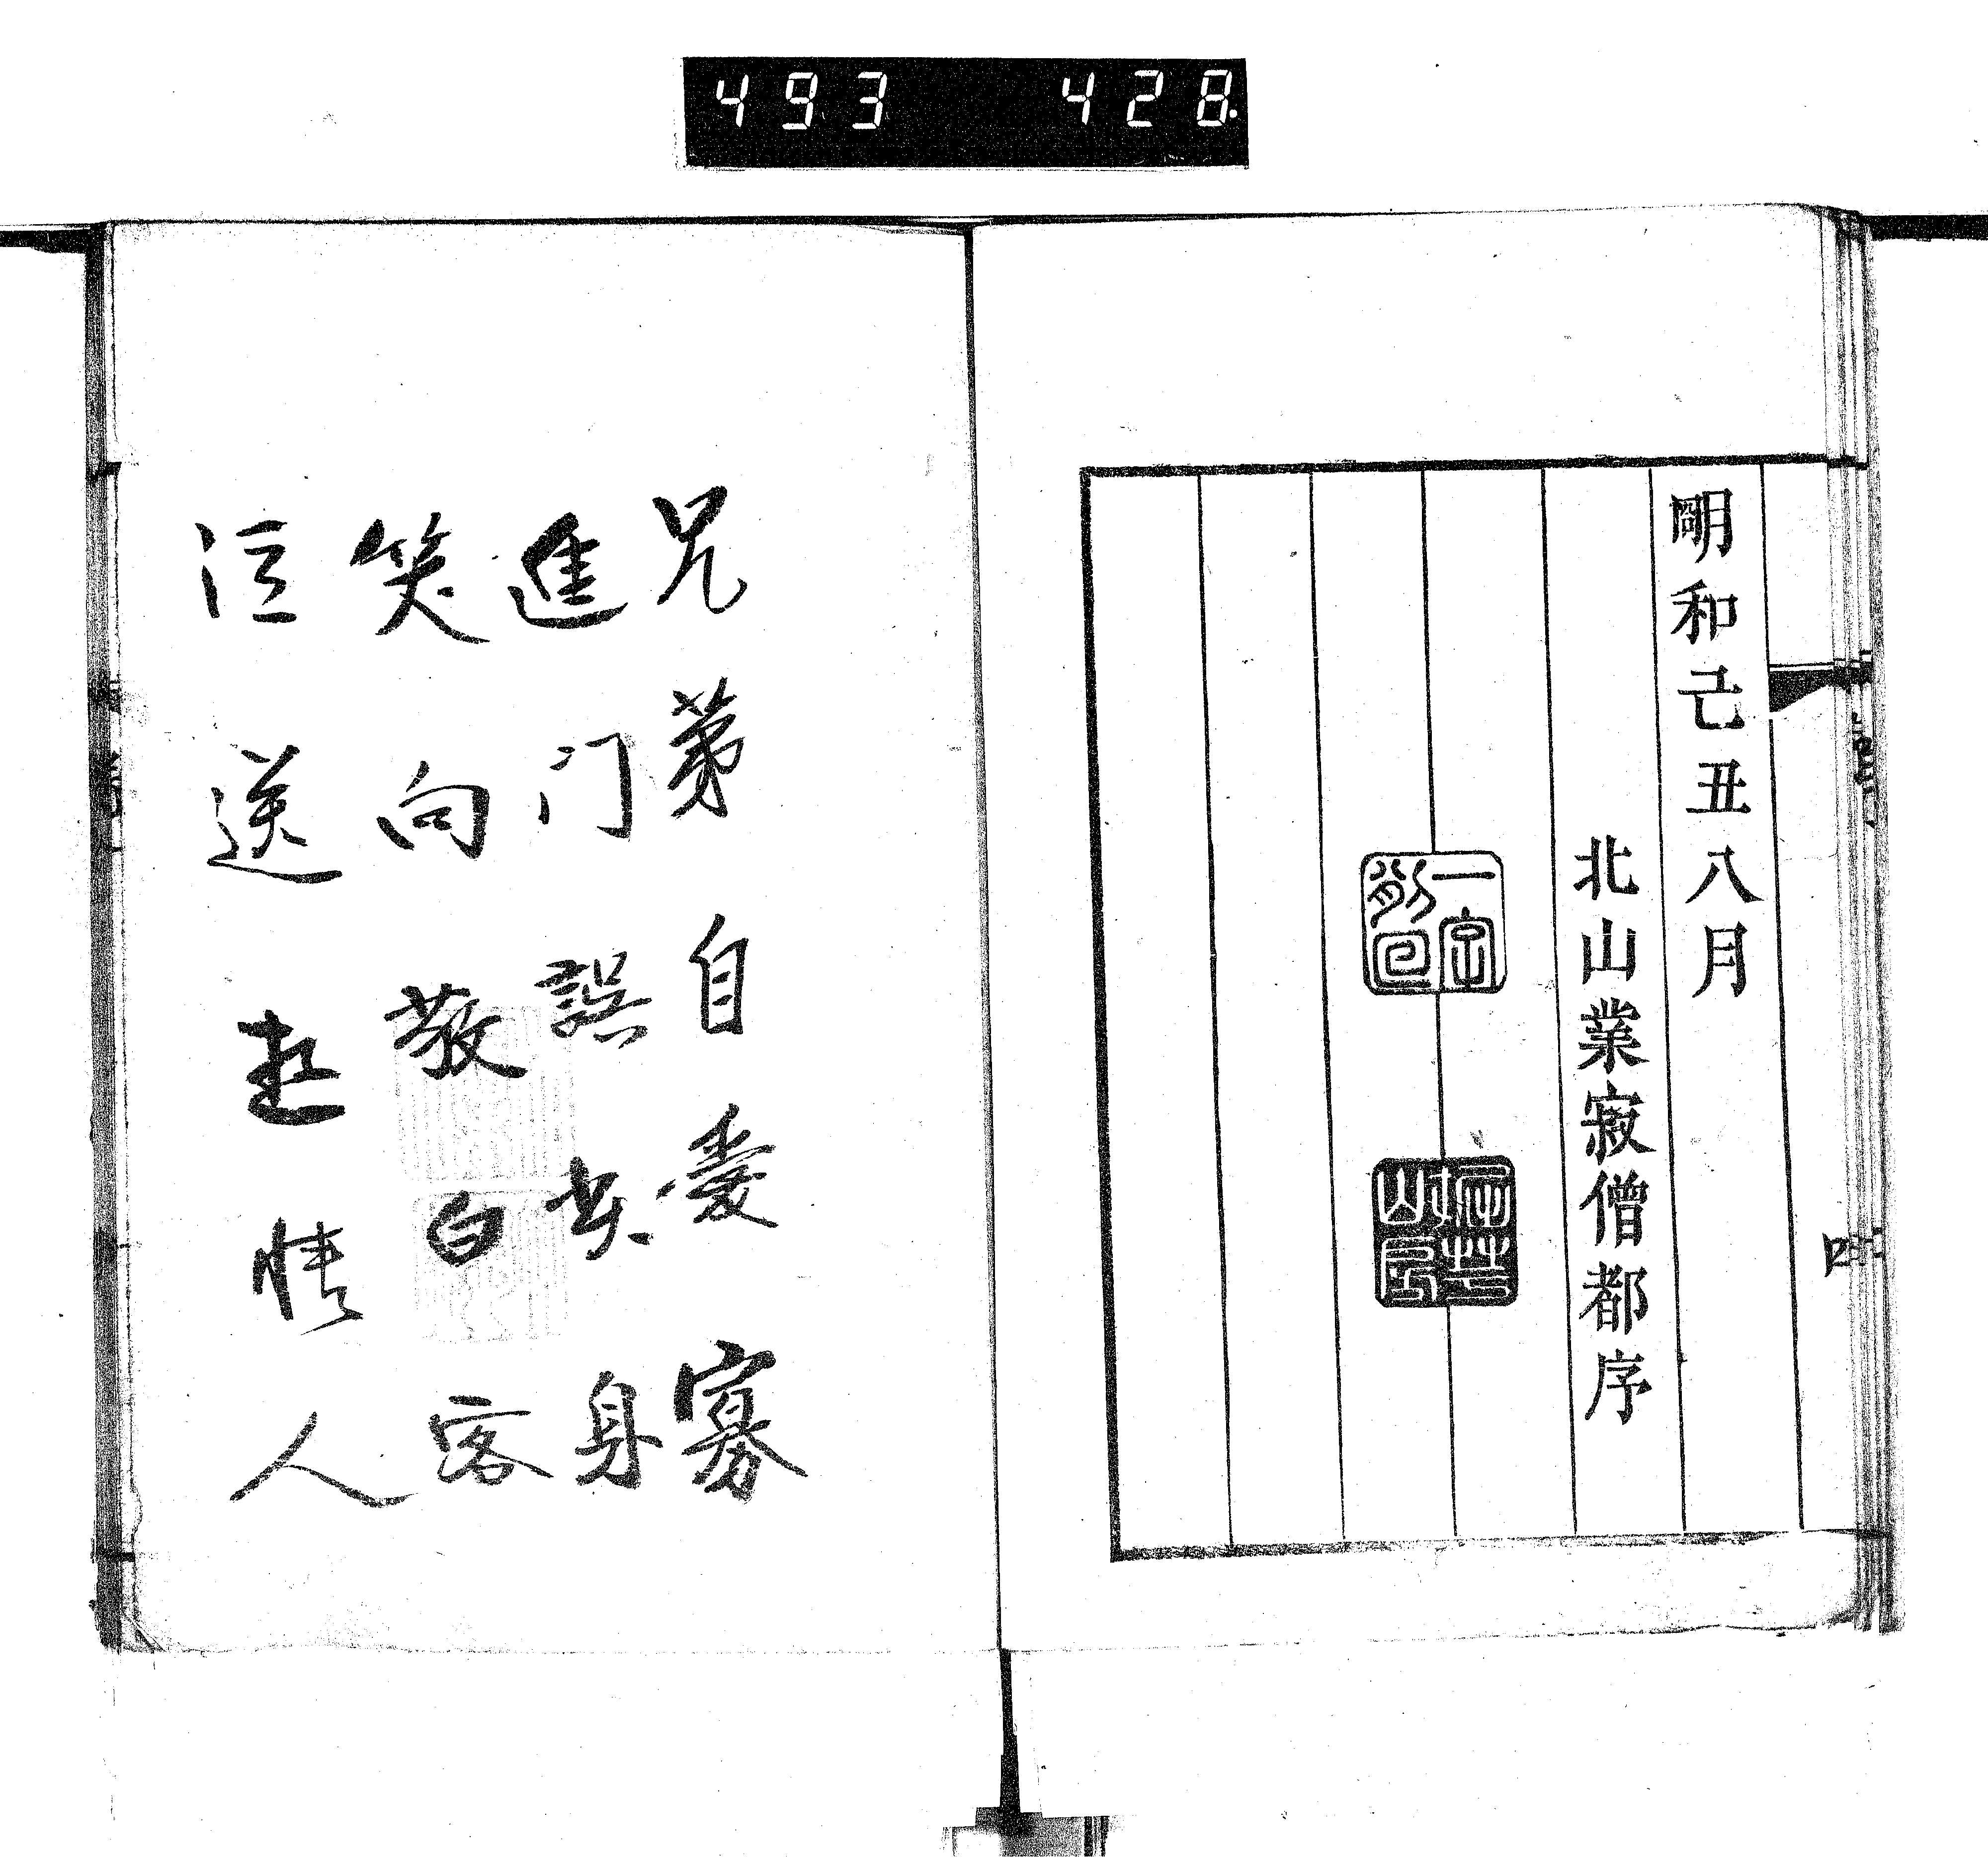 493 428.
明和己丑八月
北山業寂僧都序
四
兄弟自愛寡
進门誤身
笑向敬白客
泣送情人